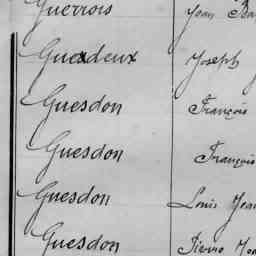 Guerrois Jean
Guesdeux Joseph
Guesdon François
Guesdon François
Guesdon Louis Jean
Guesdon Pierre